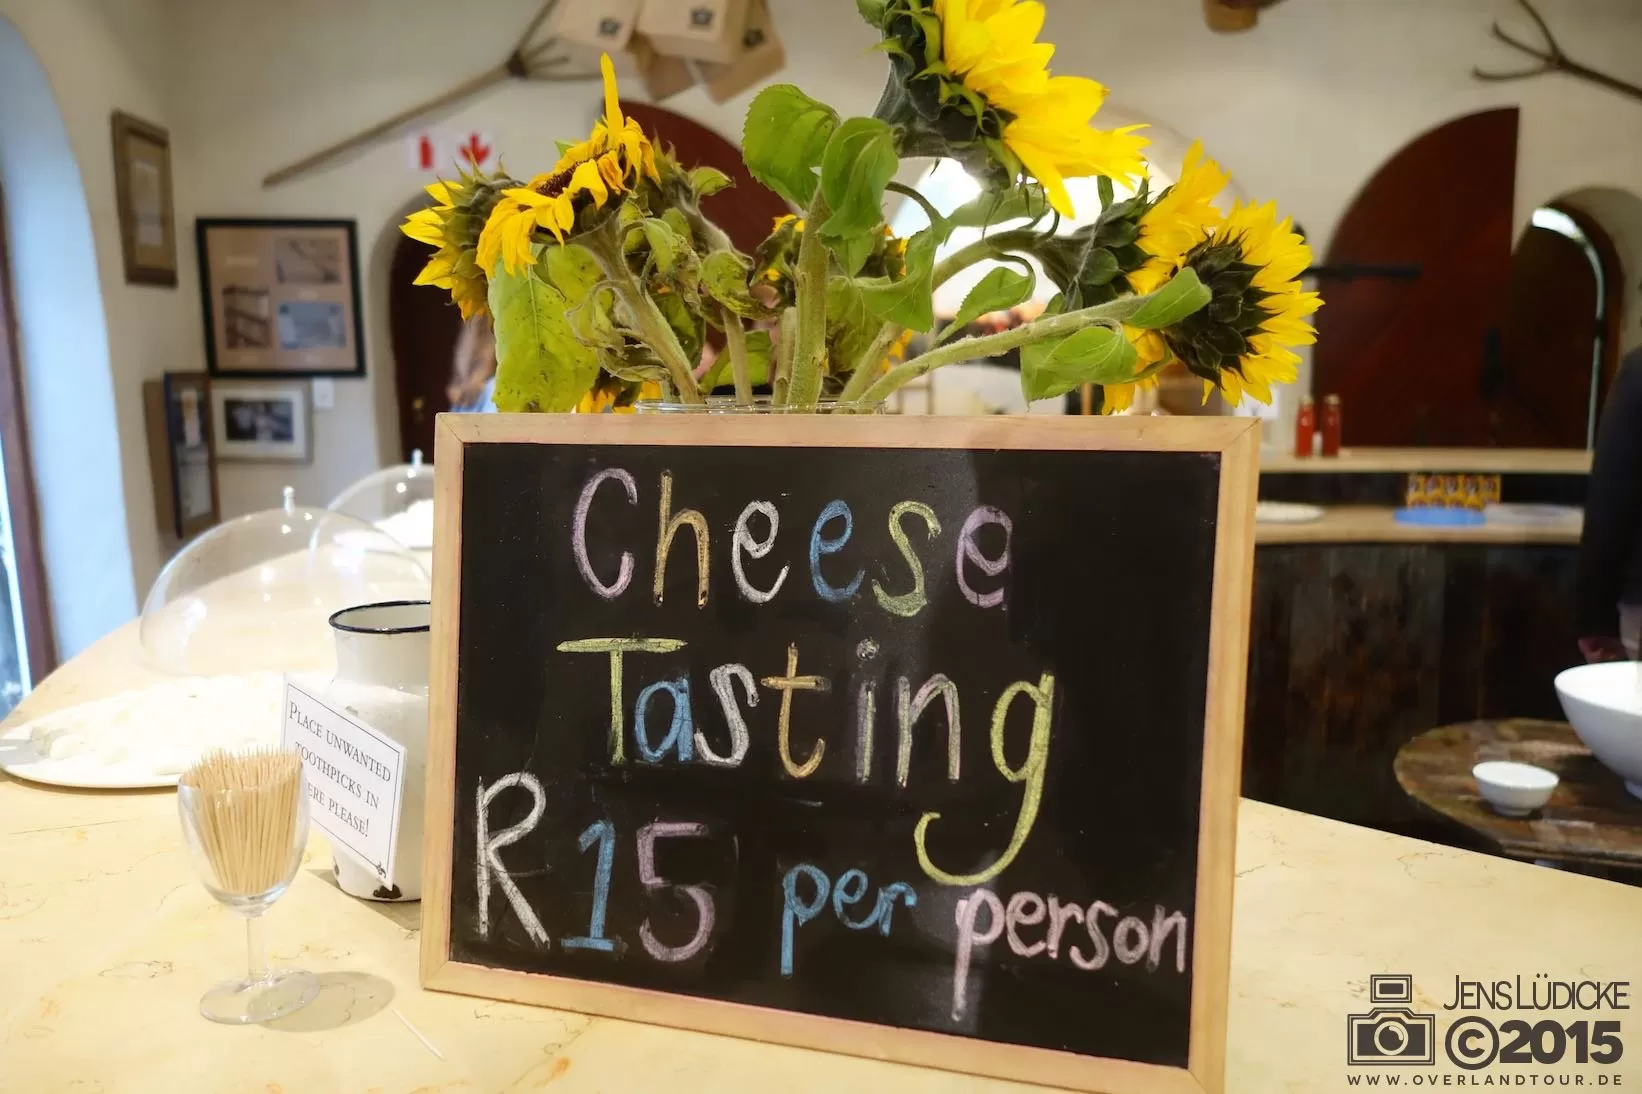 Cheese
Tasting
R15 per person
PLACE UNWANTED
TOOTHPICKS IN
ERE PLEASE!
JENS LÜDICKE
©2015
WWW.OVERLANDTOUR.DE